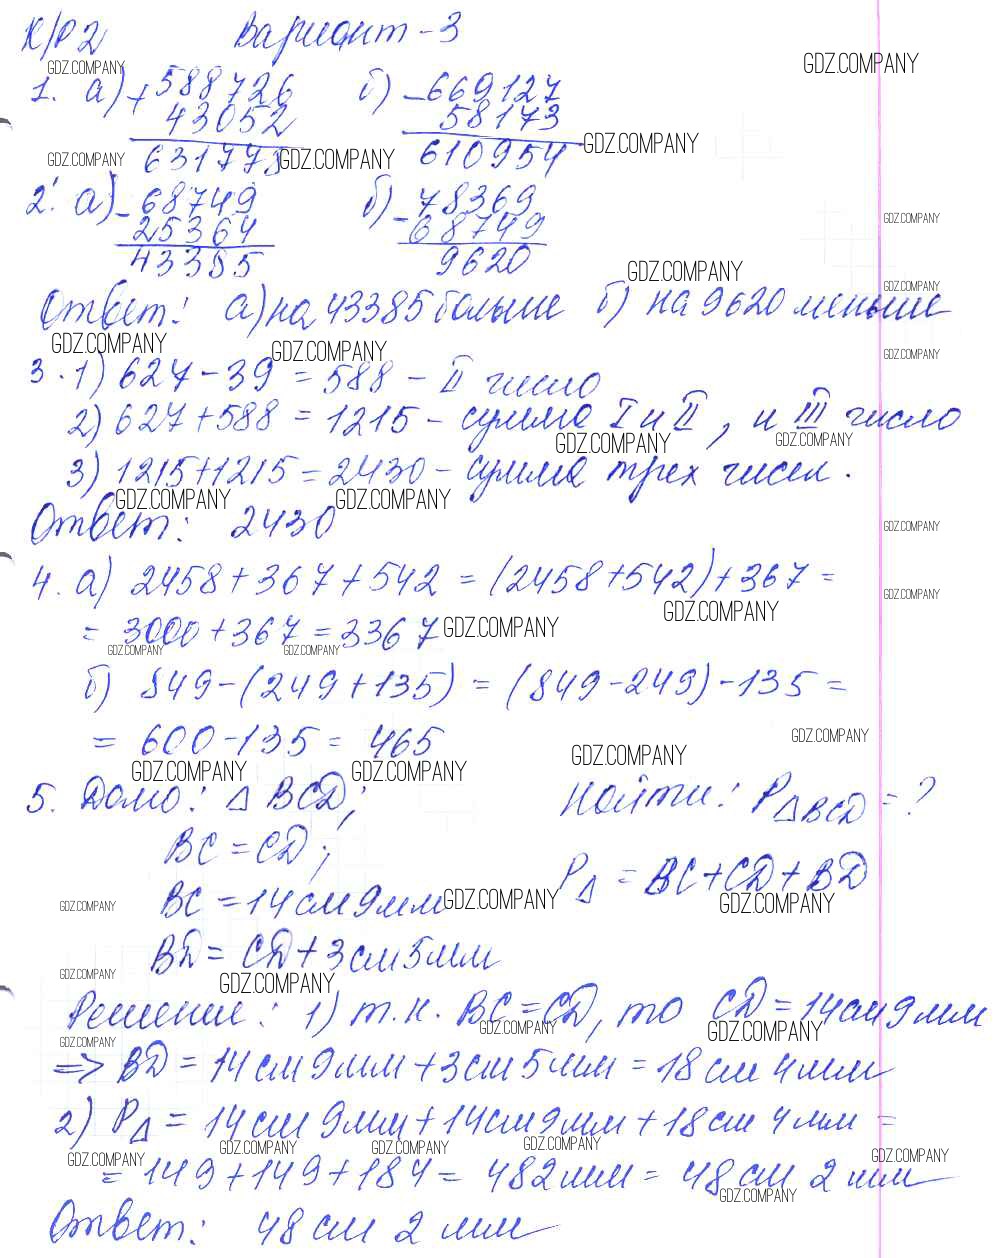 К/Р 2 Вариант - 3
GDZ.COMPANY GDZ.COMPANY
1. а) + 588726 б) - 669127
43052 58173
GDZ.COMPANY
GDZ.COMPANY 631778 GDZ.COMPANY 610954
2. а) - 68749 б) - 78369
25364 68749 GDZ.COMPANY
43385 9620 GDZ.COMPANY
GDZ.COMPANY
Ответ: а) на 43385 больше б) на 9620 меньше
GDZ.COMPANY GDZ.COMPANY GDZ.COMPANY
3. 1) 627 - 39 = 588 - II число
2) 627 + 588 = 1215 - сумма I и II, и III число
GDZ.COMPANY GDZ.COMPANY
3) 1215 + 1215 = 2430 - сумма трех чисел.
GDZ.COMPANY GDZ.COMPANY
Ответ: 2430 GDZ.COMPANY
4. а) 2458 + 367 + 542 = (2458 + 542) + 367 =
GDZ.COMPANY GDZ.COMPANY
= 3000 + 367 = 3367 GDZ.COMPANY
GDZ.COMPANY GDZ.COMPANY
б) 849 - (249 + 135) = (849 - 249) - 135 =
= 600 - 135 = 465 GDZ.COMPANY GDZ.COMPANY
GDZ.COMPANY GDZ.COMPANY
5. Дано: Δ BCD; Найти: P Δ BCD = ?
BC = CD;
P Δ = BC + CD + BD
GDZ.COMPANY BC = 14 см 9 мм GDZ.COMPANY GDZ.COMPANY
BD = CD + 3 см 5 мм
GDZ.COMPANY GDZ.COMPANY
Решение: 1) т.к. BC = CD, то CD = 14 см 9 мм
GDZ.COMPANY GDZ.COMPANY GDZ.COMPANY
=> BD = 14 см 9 мм + 3 см 5 мм = 18 см 4 мм
2) P Δ = 14 см 9 мм + 14 см 9 мм + 18 см 4 мм =
GDZ.COMPANY GDZ.COMPANY GDZ.COMPANY GDZ.COMPANY GDZ.COMPANY
= 149 + 149 + 184 = 482 мм = 48 см 2 мм
GDZ.COMPANY
Ответ: 48 см 2 мм